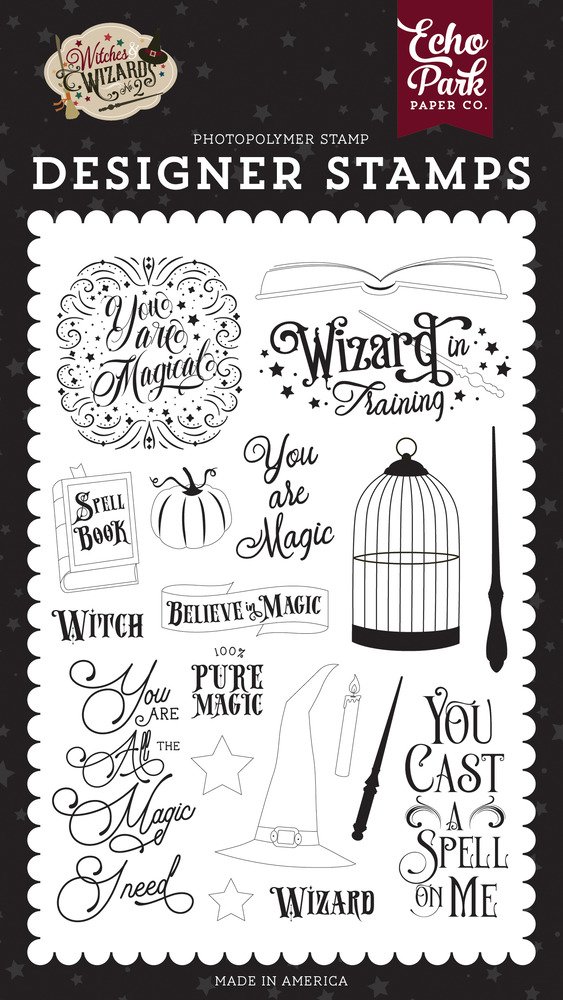 Witches &
WIZARDS
No. 2
Echo
Park
PAPER CO.
PHOTOPOLYMER STAMP
DESIGNER STAMPS
You
are
Magical
Wizard in
Training
SPELL
BOOK
You
are
Magic
BELIEVE in MAGIC
WITCH
100%
PURE
MAGIC
You
ARE
All THE
Magic
I need
YOU
CAST
A
SPELL
ON ME
WIZARD
MADE IN AMERICA